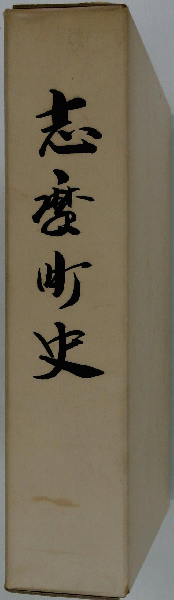 志摩町史